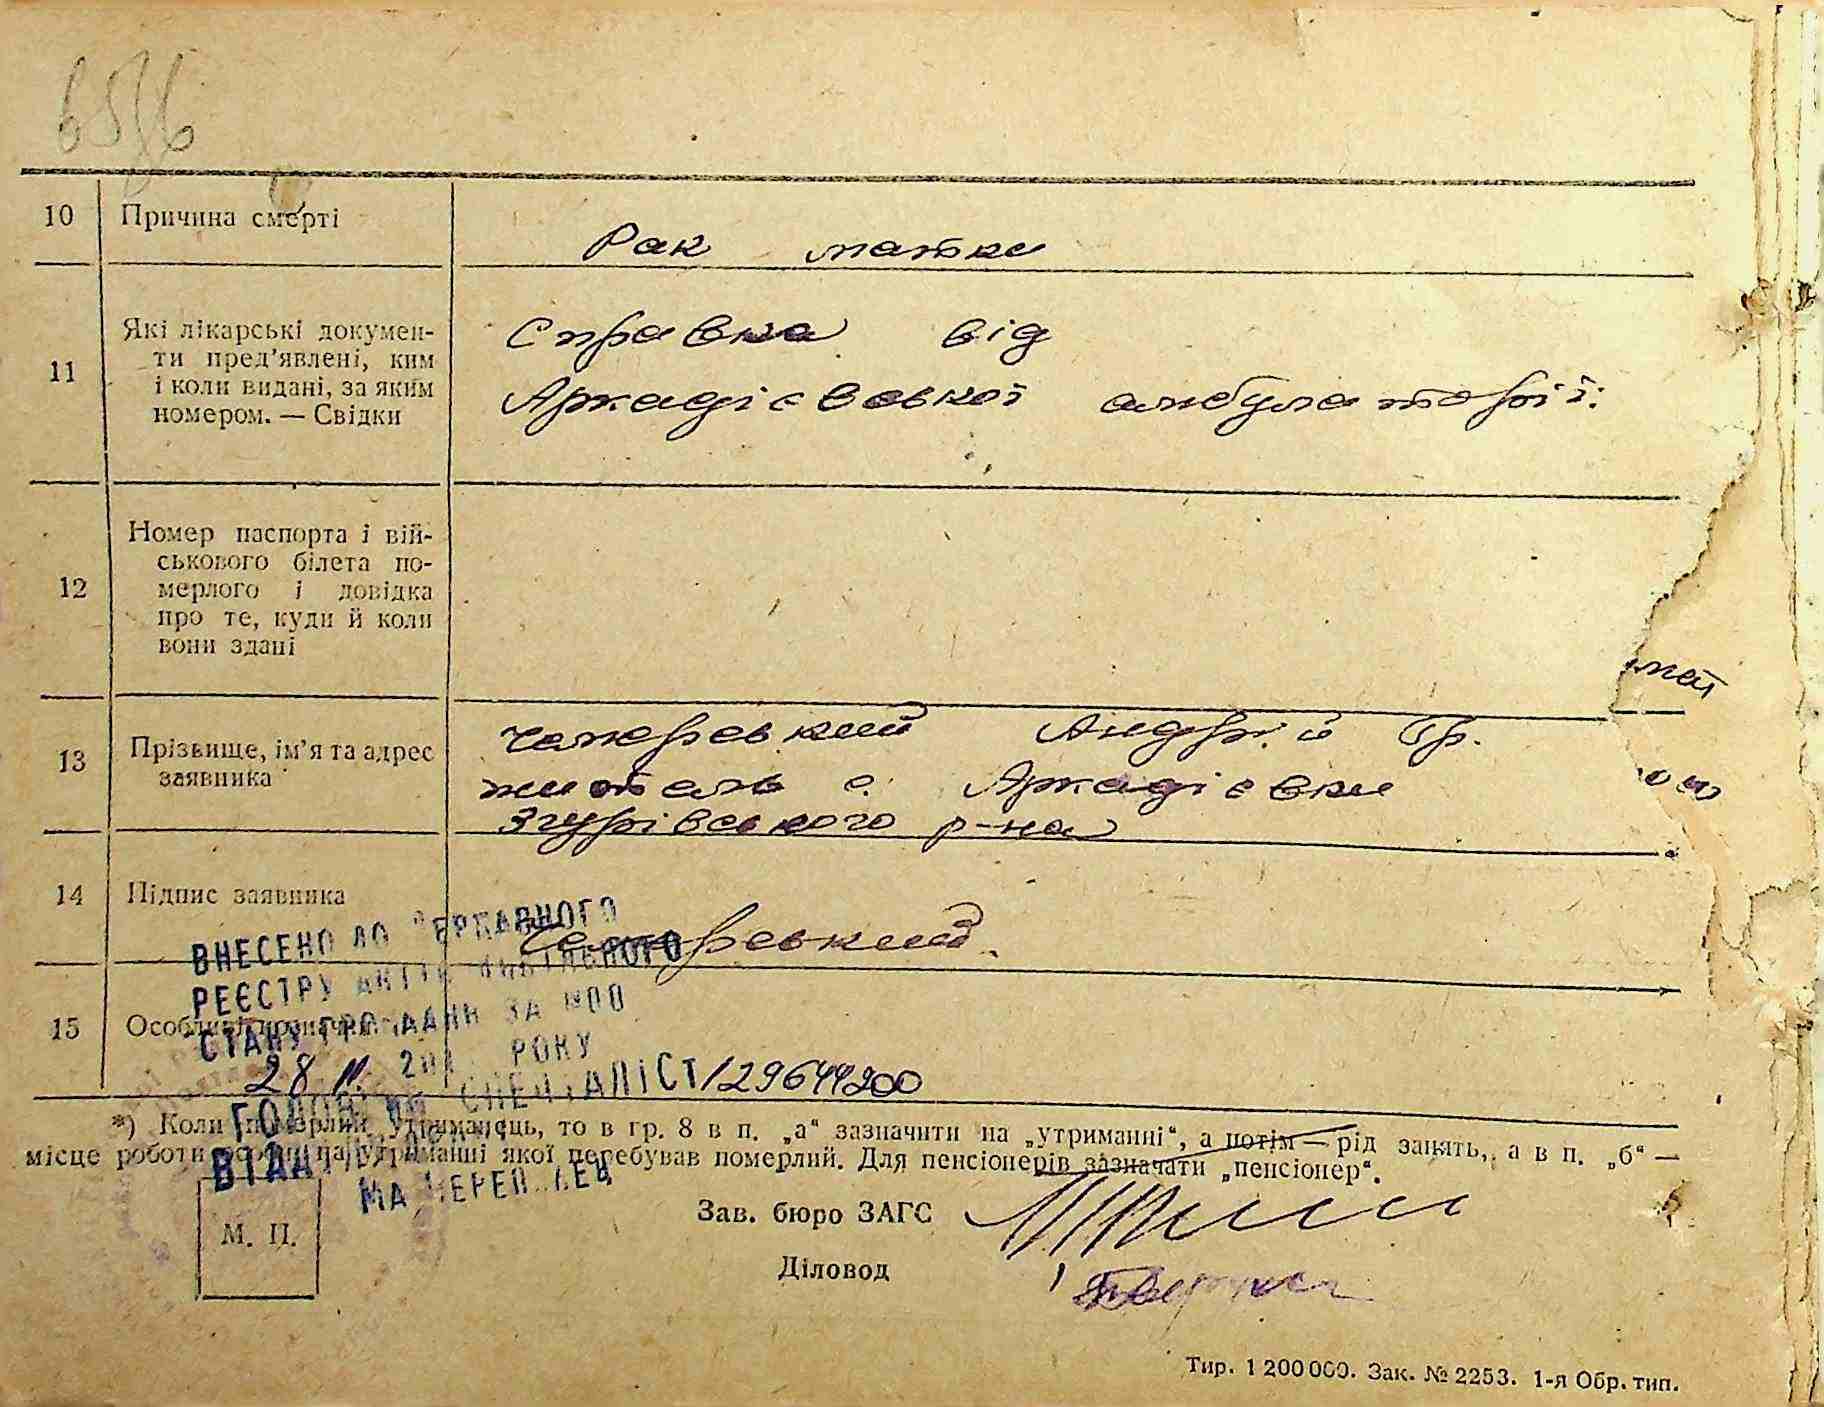 10 Причина смерті
Рак матки
11 Які лікарські докумен-
ти пред’явлені, ким
і коли видані, за яким
номером. — Свідки
Справка від
Аркадієвської амбулаторії:
12 Номер паспорта і вій-
ськового білета по-
мерлого і довідка
про те, куди й коли
вони здані
13 Прізвище, ім’я та адрес
заявника
Андрій Гр.
житель с. Аркадієвки
Згурівського р-на
14 Підпис заявника
15 Особливі
ВНЕСЕНО ДО ДЕРЖАВНОГО
РЕЄСТРУ АКТІВ ЦИВІЛЬНОГО
СТАНУ ГРОМАДЯН ЗА №00
28 11. РОКУ
СПЕЦІАЛІСТ 129644200
*) Коли померлий утриманець, то в гр. 8 в п. „а“ зазначити на „утриманні“, а потім — рід занять, а в п. „б“ —
місце роботи особи, на утриманні якої перебував померлий. Для пенсіонерів зазначати „пенсіонер“.
М. П.
Зав. бюро ЗАГС
Діловод
Тир. 1 200 000. Зак. № 2253. 1-я Обр. тип.